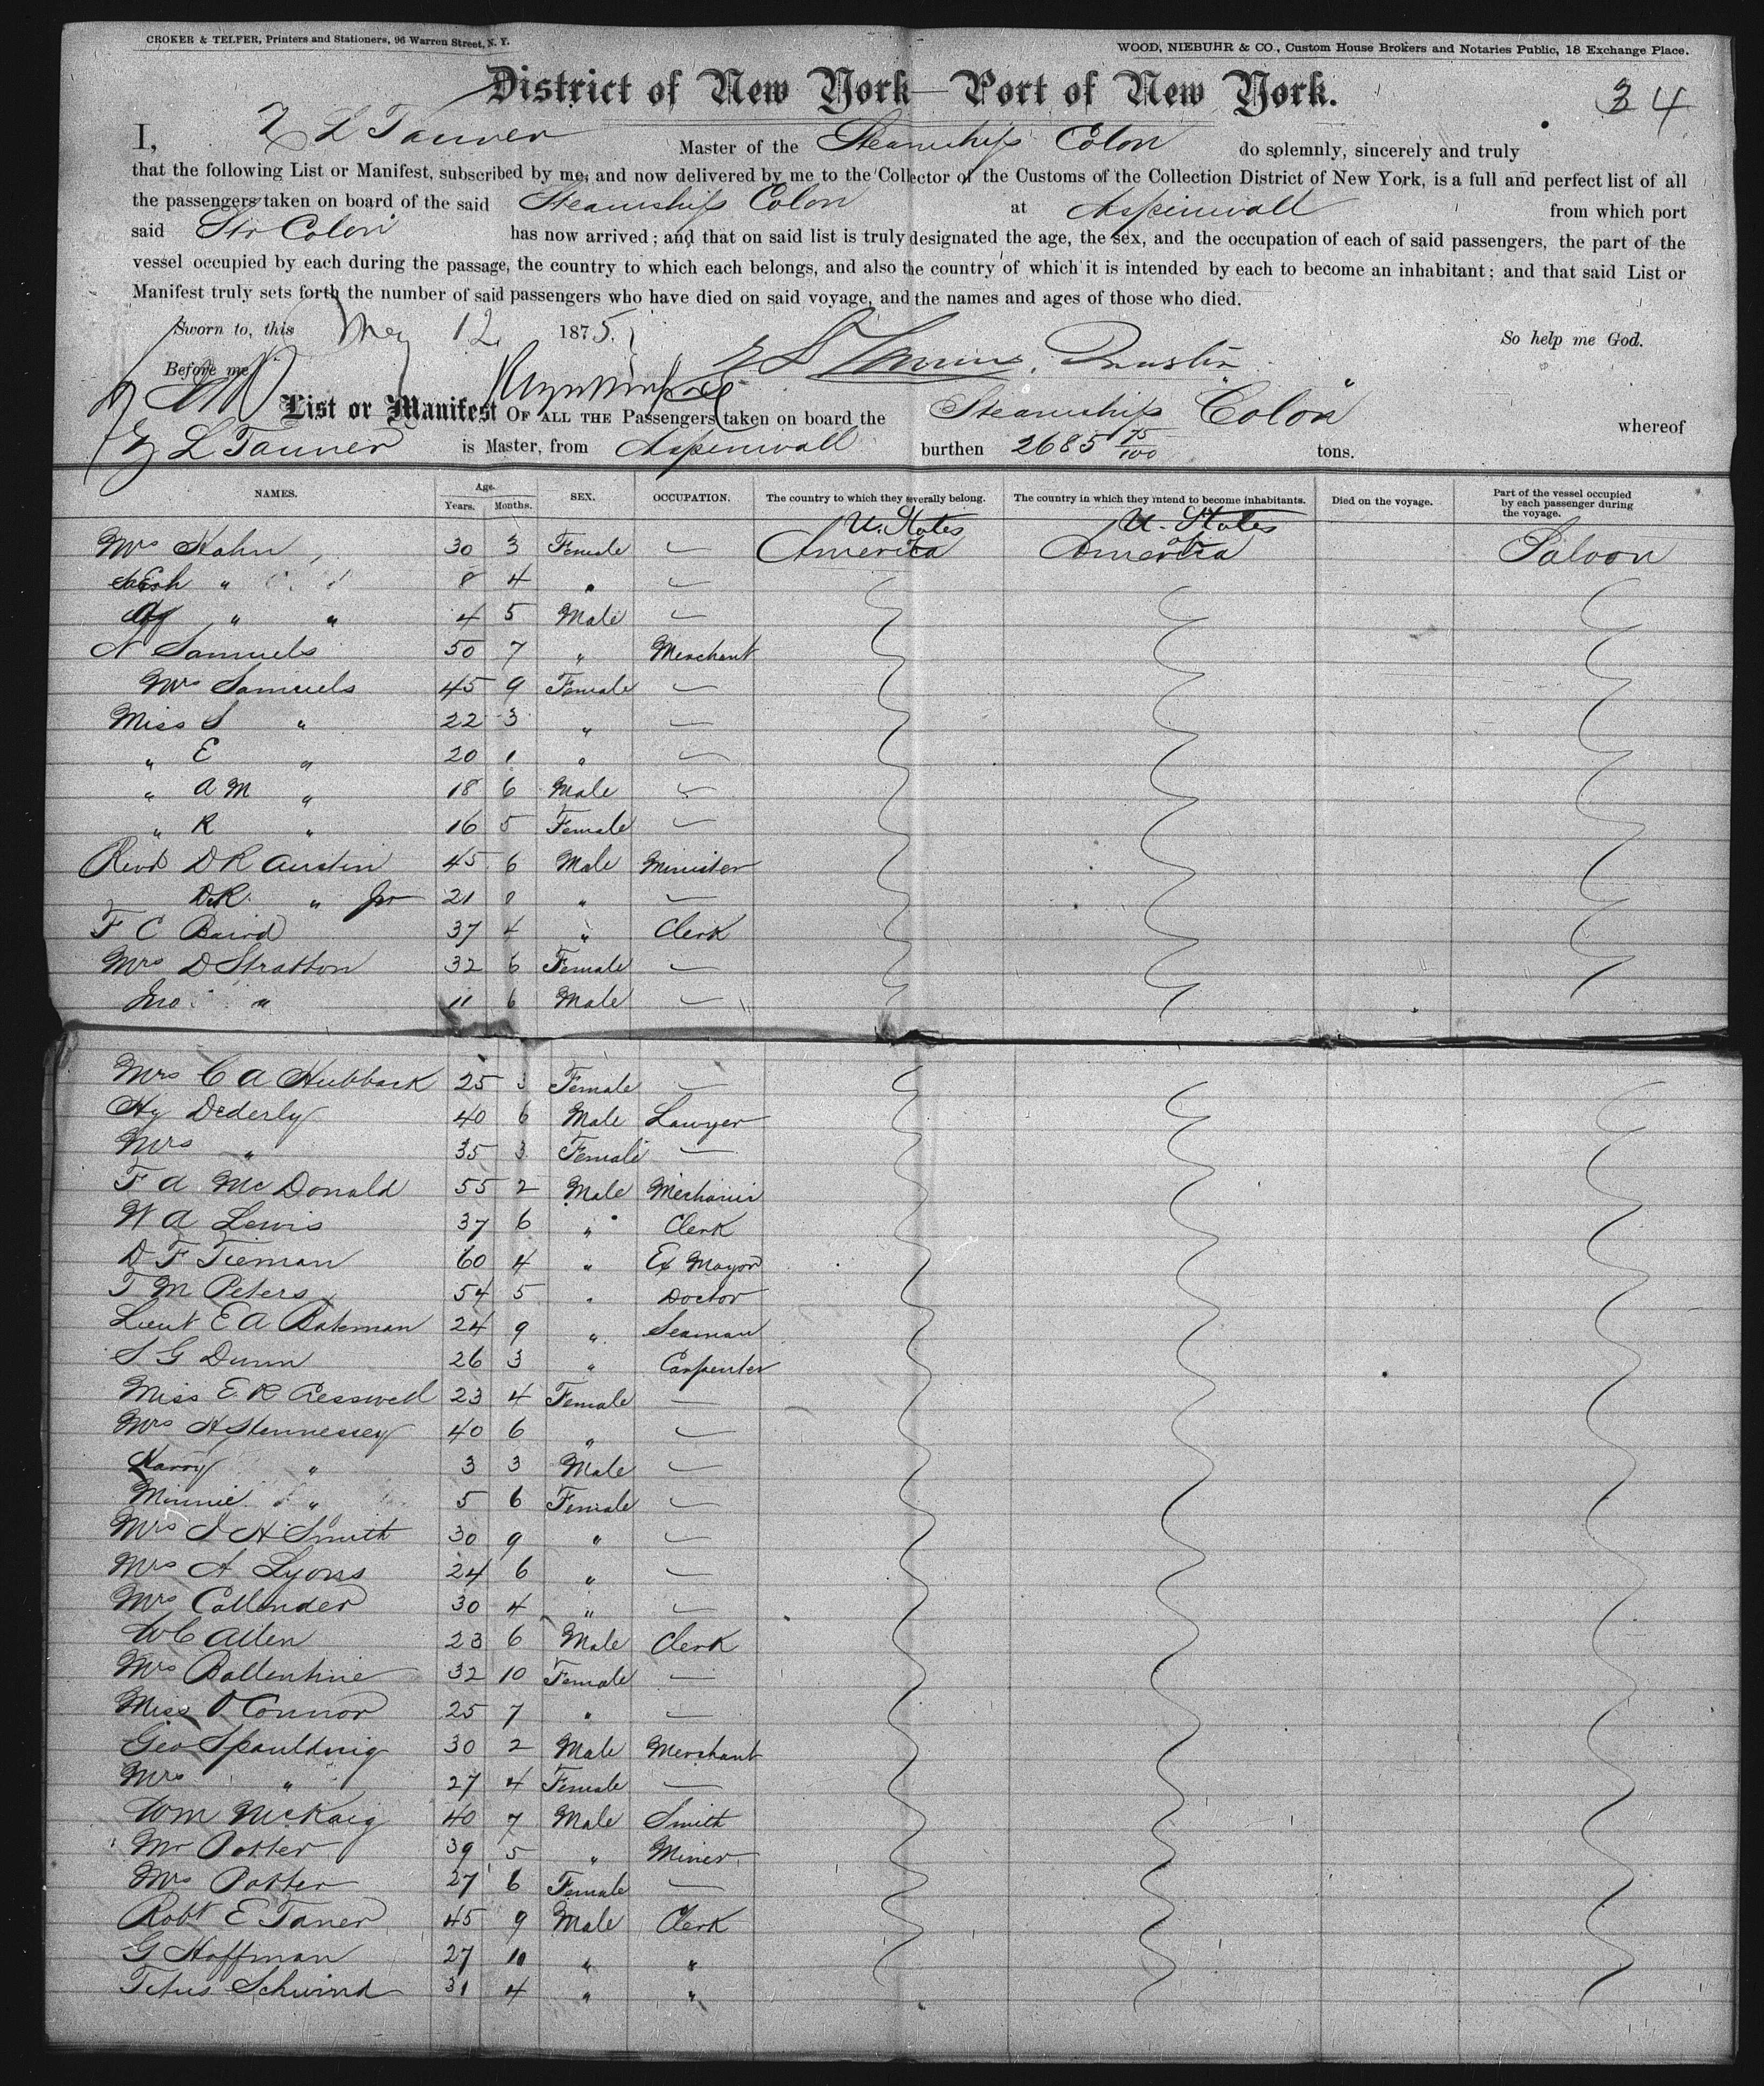 CROKER & TELFER, Printers and Stationers, 96 Warren Street, N. Y.
WOOD, NIEBUHR & CO., Custom House Brokers and Notaries Public, 18 Exchange Place.
District of New York—Port of New York.
34
I, Z L Tanner Master of the Steamship Colon do solemnly, sincerely and truly
that the following List or Manifest, subscribed by me, and now delivered by me to the Collector of the Customs of the Collection District of New York, is a full and perfect list of all
the passengers taken on board of the said Steamship Colon at Aspinwall from which port
said Str Colon has now arrived; and that on said list is truly designated the age, the sex, and the occupation of each of said passengers, the part of the
vessel occupied by each during the passage, the country to which each belongs, and also the country of which it is intended by each to become an inhabitant; and that said List or
Manifest truly sets forth the number of said passengers who have died on said voyage, and the names and ages of those who died.
Sworn to, this May 12 1875. So help me God.
Before me Z L Tanner
List or Manifest OF ALL THE Passengers taken on board the Steamship "Colon" whereof
Z L Tanner is Master, from Aspinwall burthen 2685 75/100 tons.
NAMES. Age. Years. Months. SEX. OCCUPATION. The country to which they severally belong. The country in which they intend to become inhabitants. Died on the voyage. Part of the vessel occupied by each passenger during the voyage.
U. States U. States
Mrs Kahn 30 3 Female — America America Saloon
" 8 4 " —
" " 4 5 Male —
N Samuels 50 7 " Merchant
Mrs Samuels 45 9 Female —
Miss S " 22 3 " —
" E " 20 1 " —
" A M " 18 6 Male —
" R " 16 5 Female —
Revd D R Austin 45 6 Male Minister
D.R. " Jr 21 8 " —
F C Baird 37 4 " Clerk
Mrs D Stratton 32 6 Female —
Jno " 11 6 Male —
Mrs C A Hubbark 25 3 Female —
Hy Dederly 40 6 Male Lawyer
Mrs " 35 3 Female —
F A McDonald 55 2 Male Mechanic
W A Lewis 37 6 " Clerk
D F Tieman 60 4 " Ex Mayor
T M Peters 54 5 " Doctor
Lieut E A Bateman 24 9 " Seaman
S G Dunn 26 3 " Carpenter
Miss E. R Cresswell 23 4 Female —
Mrs H Hennessey 40 6 " —
Harry " 3 3 Male —
Minnie " 5 6 Female —
Mrs J H Smith 30 9 " —
Mrs A Lyons 24 6 " —
Mrs Callender 30 4 " —
W C Allen 23 6 Male Clerk
Mrs Ballentine 32 10 Female —
Miss O'Connor 25 7 " —
Geo Spaulding 30 2 Male Merchant
Mrs " 27 4 Female —
Wm McKaig 40 7 Male Smith
Mr Potter 39 5 " Miner
Mrs Potter 27 6 Female —
Robt E Taner 45 9 Male Clerk
G Hoffman 27 10 " "
Titus Schwind 31 4 " "